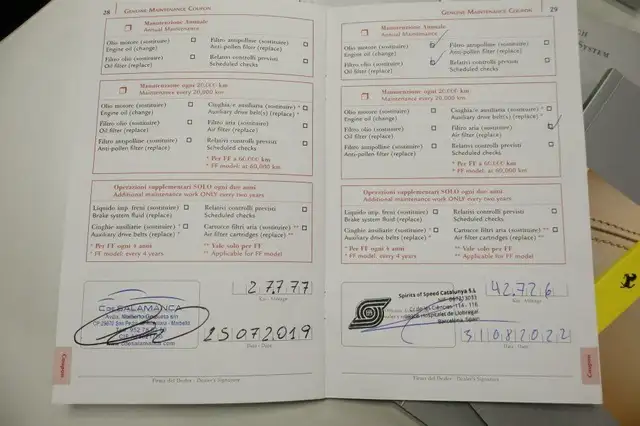 28 Genuine Maintenance Coupon
Manutenzione Annuale
Annual Maintenance
Olio motore (sostituire)
Engine oil (change)
Filtro antipolline (sostituire)
Anti-pollen filter (replace)
Filtro olio (sostituire)
Oil filter (replace)
Relativi controlli previsti
Scheduled checks
Manutenzione ogni 20.000 km
Maintenance every 20,000 km
Olio motore (sostituire)
Engine oil (change)
Cinghia/e ausiliaria (sostituire) *
Auxiliary drive belt(s) (replace) *
Filtro olio (sostituire)
Oil filter (replace)
Filtro aria (sostituire)
Air filter (replace)
Filtro antipolline (sostituire)
Anti-pollen filter (replace)
Relativi controlli previsti
Scheduled checks
* Per FF a 60.000 km
* FF model: at 60,000 km
Operazioni supplementari SOLO ogni due anni
Additional maintenance work ONLY every two years
Liquido imp. freni (sostituire)
Brake system fluid (replace)
Relativi controlli previsti
Scheduled checks
Cinghie ausiliarie (sostituire) *
Auxiliary drive belts (replace) *
Cartucce filtri aria (sostituire) **
Air filter cartridges (replace) **
* Per FF ogni 4 anni
* FF model: every 4 years
** Vale solo per FF
** Applicable for FF model
27.777
Km - Mileage
C. de SALAMANCA
25072019
Data - Date
Firma del Dealer - Dealer's Signature
Coupons
Genuine Maintenance Coupon 29
Manutenzione Annuale
Annual Maintenance
Olio motore (sostituire)
Engine oil (change)
Filtro antipolline (sostituire)
Anti-pollen filter (replace)
Filtro olio (sostituire)
Oil filter (replace)
Relativi controlli previsti
Scheduled checks
Manutenzione ogni 20.000 km
Maintenance every 20,000 km
Olio motore (sostituire)
Engine oil (change)
Cinghia/e ausiliaria (sostituire) *
Auxiliary drive belt(s) (replace) *
Filtro olio (sostituire)
Oil filter (replace)
Filtro aria (sostituire)
Air filter (replace)
Filtro antipolline (sostituire)
Anti-pollen filter (replace)
Relativi controlli previsti
Scheduled checks
* Per FF a 60.000 km
* FF model: at 60,000 km
Operazioni supplementari SOLO ogni due anni
Additional maintenance work ONLY every two years
Liquido imp. freni (sostituire)
Brake system fluid (replace)
Relativi controlli previsti
Scheduled checks
Cinghie ausiliarie (sostituire) *
Auxiliary drive belts (replace) *
Cartucce filtri aria (sostituire) **
Air filter cartridges (replace) **
* Per FF ogni 4 anni
* FF model: every 4 years
** Vale solo per FF
** Applicable for FF model
42.726
Km - Mileage
Spirits of Speed Catalunya S.L
Barcelona, Spain
31082022
Data - Date
Firma del Dealer - Dealer's Signature
Coupons
System